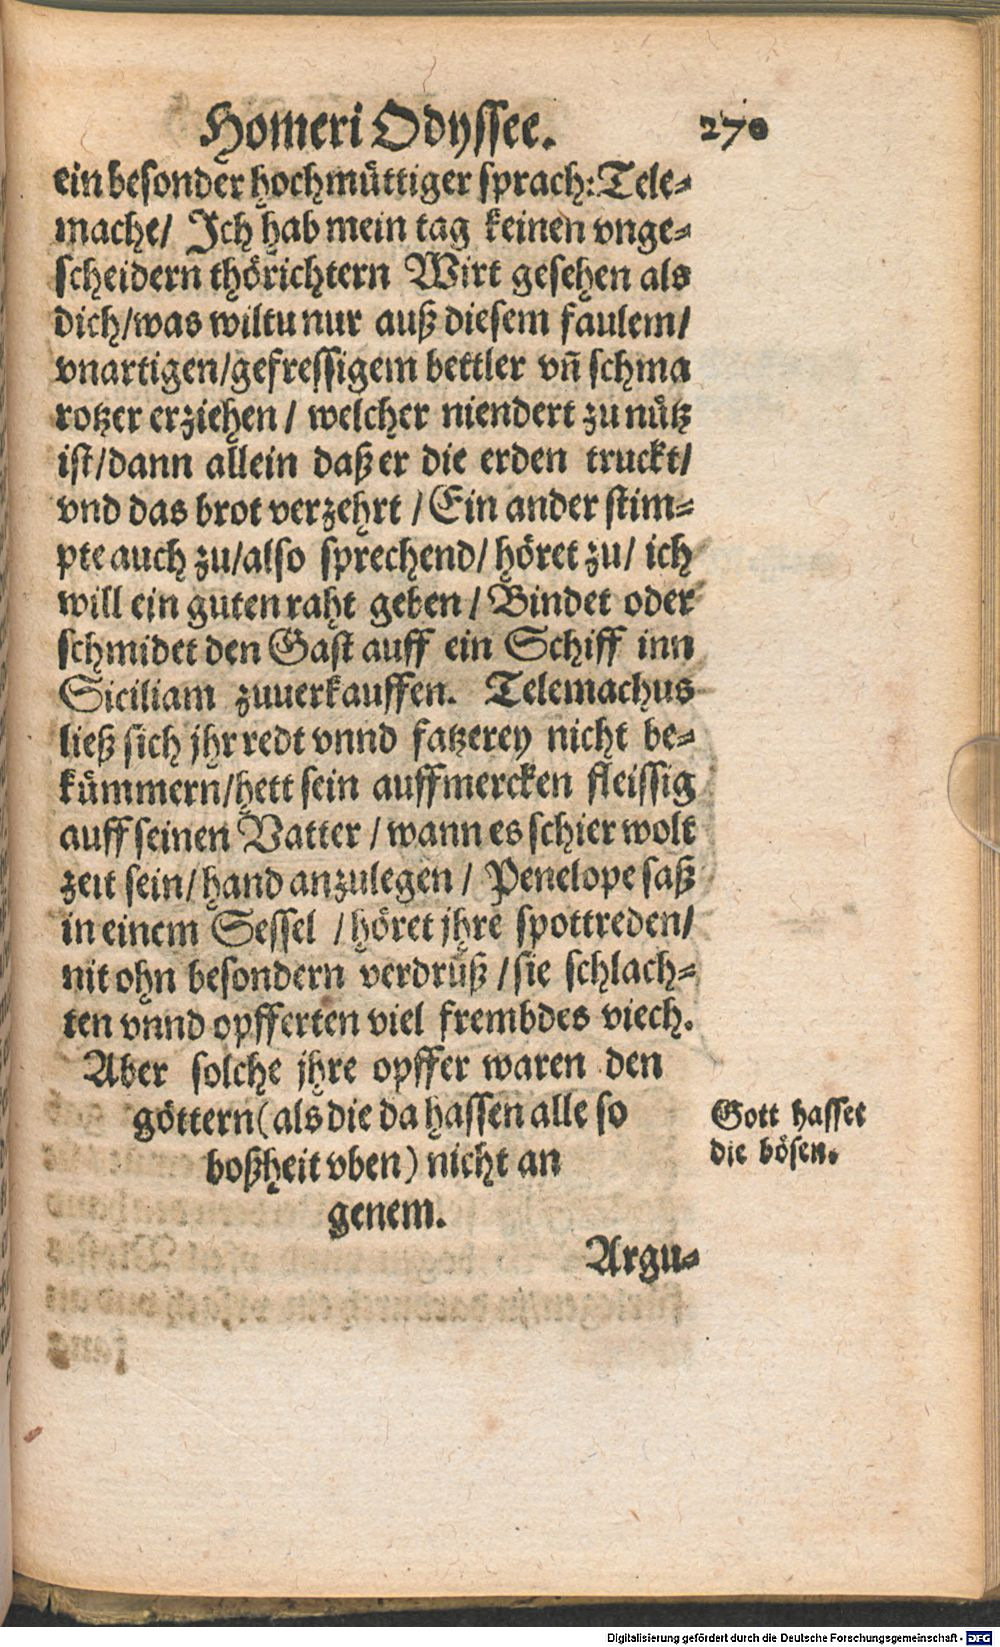 Homeri Odyssee. 270
ein besonder hochmüttiger sprach: Tele-
mache/ Ich hab mein tag keinen vnge-
scheidern thörichtern Wirt gesehen als
dich/was wiltu nur auß diesem faulem/
vnartigen/gefressigem bettler vñ schma
rotzer erziehen/ welcher niendert zu nütz
ist/dann allein daß er die erden truckt/
vnd das brot verzehrt/ Ein ander stim-
pte auch zu/also sprechend/ höret zu/ ich
will ein guten raht geben/ Bindet oder
schmidet den Gast auff ein Schiff inn
Siciliam zuuerkauffen. Telemachus
ließ sich jhr redt vnnd fatzerey nicht be-
kümmern/hett sein auffmercken fleissig
auff seinen Vatter/ wann es schier wolt
zeit sein/ hand anzulegen/ Penelope saß
in einem Sessel/ höret jhre spottreden/
nit ohn besondern verdruß/ sie schlach-
ten vnnd opfferten viel frembdes viech.
Aber solche jhre opffer waren den
göttern (als die da hassen alle so
boßheit vben) nicht an
genem.
Gott hasset
die bösen.
Argu-
Digitalisierung gefördert durch die Deutsche Forschungsgemeinschaft - DFG